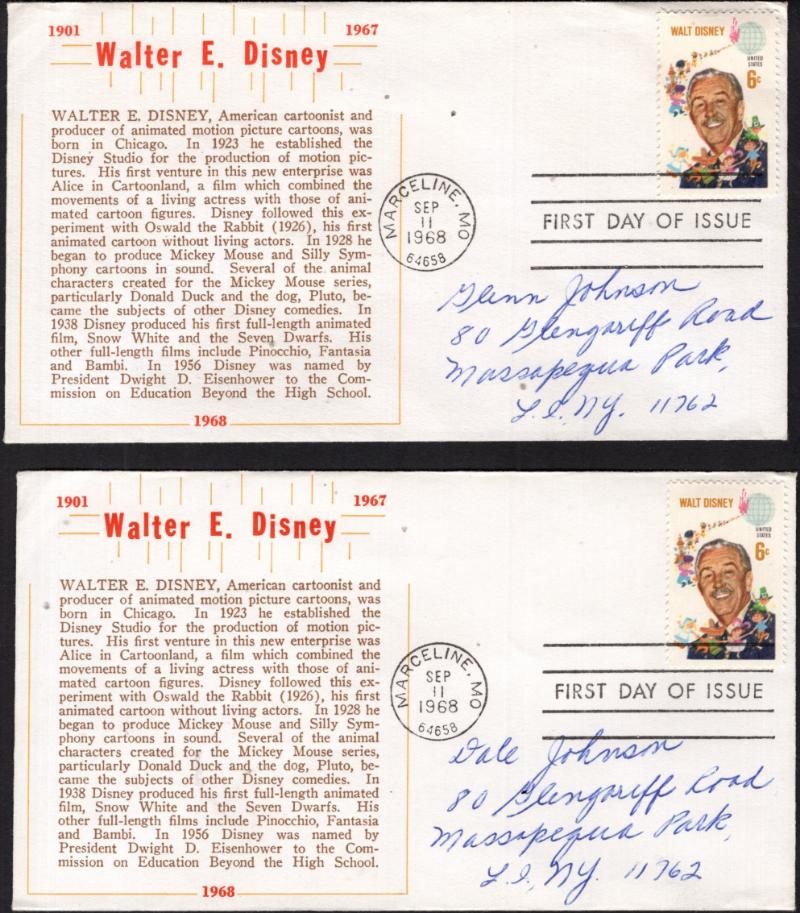 1901 1967
Walter E. Disney
WALTER E. DISNEY, American cartoonist and
producer of animated motion picture cartoons, was
born in Chicago. In 1923 he established the
Disney Studio for the production of motion pic-
tures. His first venture in this new enterprise was
Alice in Cartoonland, a film which combined the
movements of a living actress with those of ani-
mated cartoon figures. Disney followed this ex-
periment with Oswald the Rabbit (1926), his first
animated cartoon without living actors. In 1928 he
began to produce Mickey Mouse and Silly Sym-
phony cartoons in sound. Several of the animal
characters created for the Mickey Mouse series,
particularly Donald Duck and the dog, Pluto, be-
came the subjects of other Disney comedies. In
1938 Disney produced his first full-length animated
film, Snow White and the Seven Dwarfs. His
other full-length films include Pinocchio, Fantasia
and Bambi. In 1956 Disney was named by
President Dwight D. Eisenhower to the Com-
mission on Education Beyond the High School.
1968
WALT DISNEY
UNITED
STATES
6c
MARCELINE, MO
SEP
11
1968
64658
FIRST DAY OF ISSUE
Glenn Johnson
80 Glengariff Road
Massapequa Park,
L.I. N.Y. 11762
1901 1967
Walter E. Disney
WALTER E. DISNEY, American cartoonist and
producer of animated motion picture cartoons, was
born in Chicago. In 1923 he established the
Disney Studio for the production of motion pic-
tures. His first venture in this new enterprise was
Alice in Cartoonland, a film which combined the
movements of a living actress with those of ani-
mated cartoon figures. Disney followed this ex-
periment with Oswald the Rabbit (1926), his first
animated cartoon without living actors. In 1928 he
began to produce Mickey Mouse and Silly Sym-
phony cartoons in sound. Several of the animal
characters created for the Mickey Mouse series,
particularly Donald Duck and the dog, Pluto, be-
came the subjects of other Disney comedies. In
1938 Disney produced his first full-length animated
film, Snow White and the Seven Dwarfs. His
other full-length films include Pinocchio, Fantasia
and Bambi. In 1956 Disney was named by
President Dwight D. Eisenhower to the Com-
mission on Education Beyond the High School.
1968
WALT DISNEY
UNITED
STATES
6c
MARCELINE, MO
SEP
11
1968
64658
FIRST DAY OF ISSUE
Dale Johnson
80 Glengariff Road
Massapequa Park,
L.I. N.Y. 11762